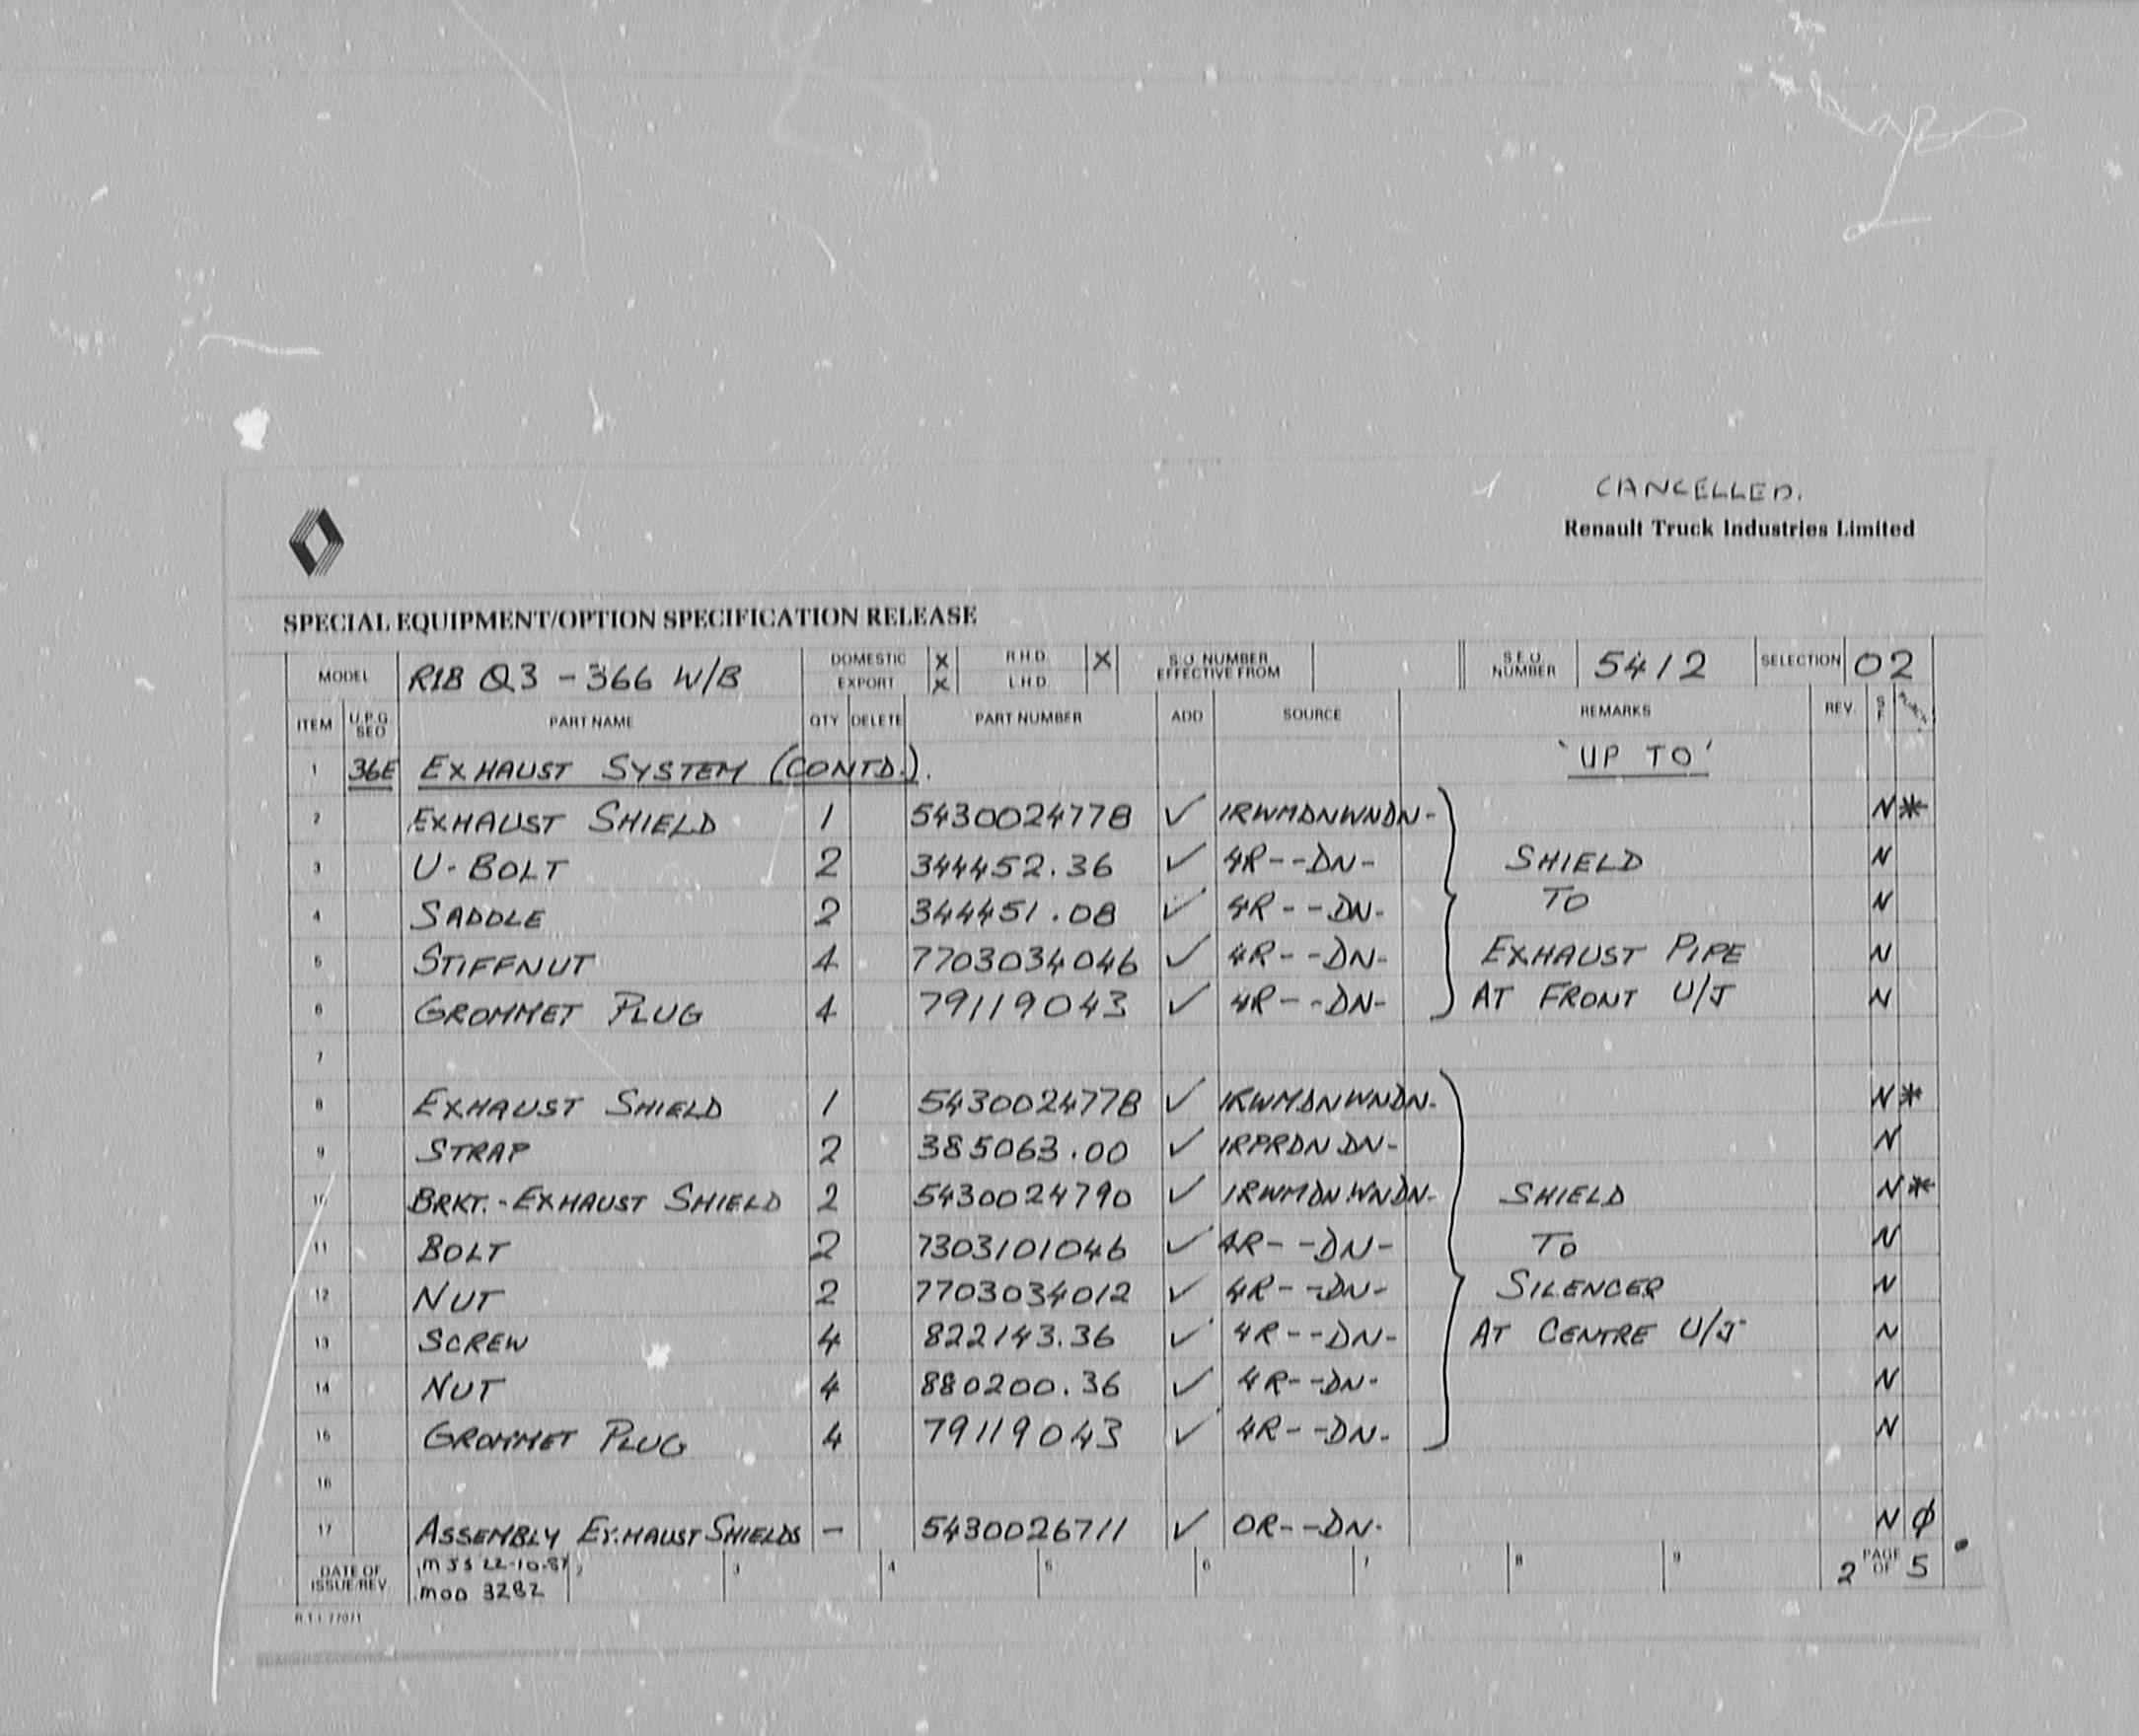 CANCELLED.
Renault Truck Industries Limited
SPECIAL EQUIPMENT/OPTION SPECIFICATION RELEASE
MODEL R1B Q3 - 366 W/B DOMESTIC X R.H.D. X S.O. NUMBER EFFECTIVE FROM S.E.O. NUMBER 5412 SELECTION 02
EXPORT X L.H.D.
ITEM U.P.G. SEQ PART NAME QTY DELETE PART NUMBER ADD SOURCE REMARKS REV. S F
1 36E EXHAUST SYSTEM (CONTD.). 'UP TO'
2 EXHAUST SHIELD 1 5430024778 ✓ 1RWMDNWNDN- N *
3 U-BOLT 2 344452.36 ✓ 4R--DN- SHIELD N
4 SADDLE 2 344451.08 ✓ 4R--DN- TO N
5 STIFFNUT 4 7703034046 ✓ 4R--DN- EXHAUST PIPE N
6 GROMMET PLUG 4 79119043 ✓ 4R--DN- AT FRONT U/J N
7
8 EXHAUST SHIELD 1 5430024778 ✓ 1RWMDNWNDN- N *
9 STRAP 2 385063.00 ✓ 1RPRDNDN- N
10 BRKT.-EXHAUST SHIELD 2 5430024790 ✓ 1RWMDNWNDN- SHIELD N *
11 BOLT 2 7303101046 ✓ 4R--DN- TO N
12 NUT 2 7703034012 ✓ 4R--DN- SILENCER N
13 SCREW 4 822143.36 ✓ 4R--DN- AT CENTRE U/J N
14 NUT 4 880200.36 ✓ 4R--DN- N
15 GROMMET PLUG 4 79119043 ✓ 4R--DN- N
16
17 ASSEMBLY EXHAUST SHIELDS - 5430026711 ✓ OR--DN- N Ø
DATE OF ISSUE/REV. 1 MJS 22-10-87 2 3 4 5 6 7 8 9 2 PAGE OF 5
MOD 3282
R.T.I. 77071